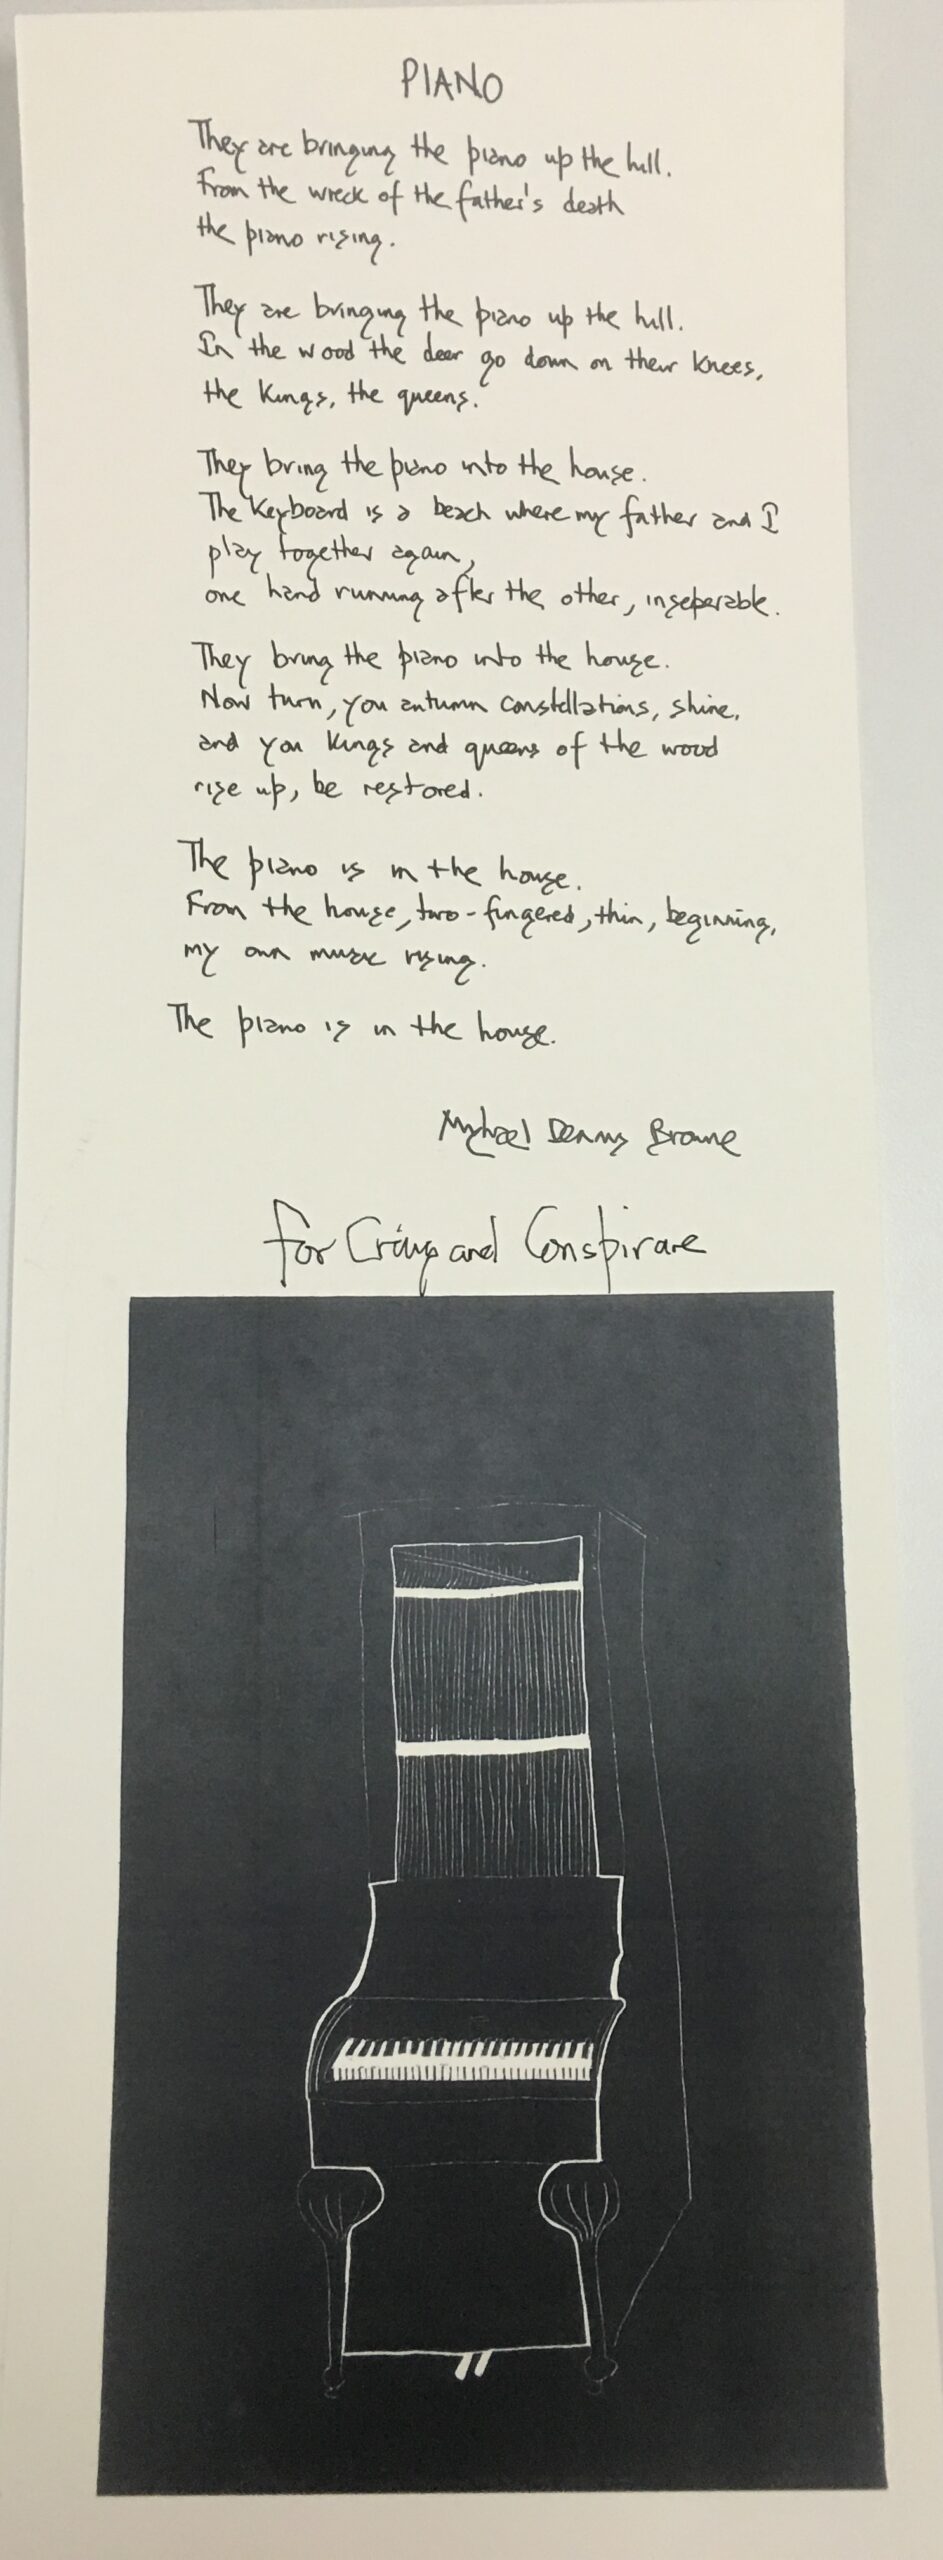 PIANO
They are bringing the piano up the hill.
From the wreck of the father's death
the piano rising.
They are bringing the piano up the hill.
In the wood the deer go down on their knees,
the kings, the queens.
They bring the piano into the house.
The keyboard is a beach where my father and I
play together again,
one hand running after the other, inseperable.
They bring the piano into the house.
Now turn, you autumn constellations, shine,
and you kings and queens of the wood
rise up, be restored.
The piano is in the house.
From the house, two-fingered, thin, beginning,
my own music rising.
The piano is in the house.
Michael Dennis Browne
for Craig and Conspirare